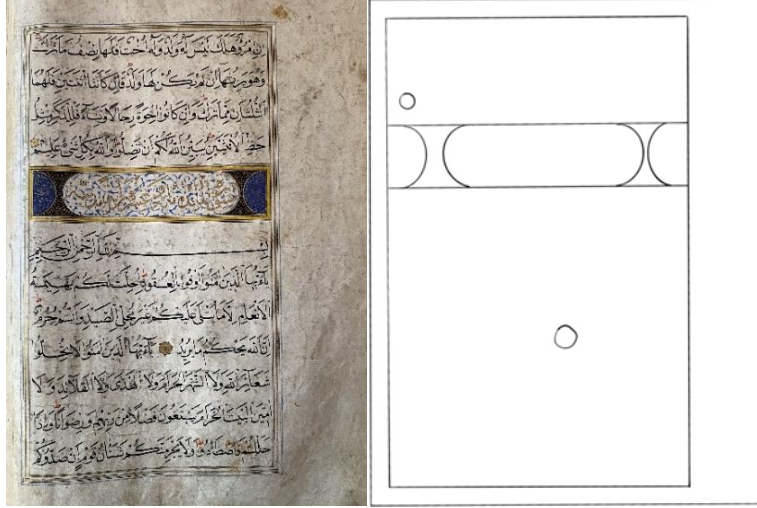 إن امرؤ هلك ليس له ولد وله أخت فلها نصف ما ترك
وهو يرثها إن لم يكن لها ولد فإن كانتا اثنتين فلهما
الثلثان مما ترك وإن كانوا إخوة رجالا ونساء فللذكر مثل
حظ الأنثيين يبين الله لكم أن تضلوا والله بكل شيء عليم
سورة المائدة
بسم الله الرحمن الرحيم
يا أيها الذين آمنوا أوفوا بالعقود أحلت لكم بهيمة
الأنعام إلا ما يتلى عليكم غير محلي الصيد وأنتم حرم
إن الله يحكم ما يريد يا أيها الذين آمنوا لا تحلوا
شعائر الله ولا الشهر الحرام ولا الهدي ولا القلائد ولا
آمين البيت الحرام يبتغون فضلا من ربهم ورضوانا وإذا
حللتم فاصطادوا ولا يجرمنكم شنآن قوم أن صدوكم